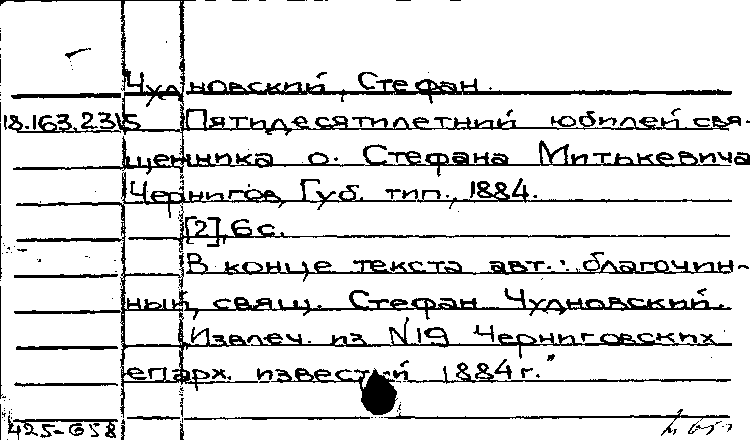 Чудновский, Стефан.
18.163.2315 Пятидесятилетний юбилей свя-
щенника о. Стефана Митькевича
Чернигов, Губ. тип., 1884.
[2], 6 с.
В конце текста авт.: благочин-
ный, свящ. Стефан Чудновский.
"Извлеч. из N19 Черниговских
епарх. известий 1884 г."
425-658